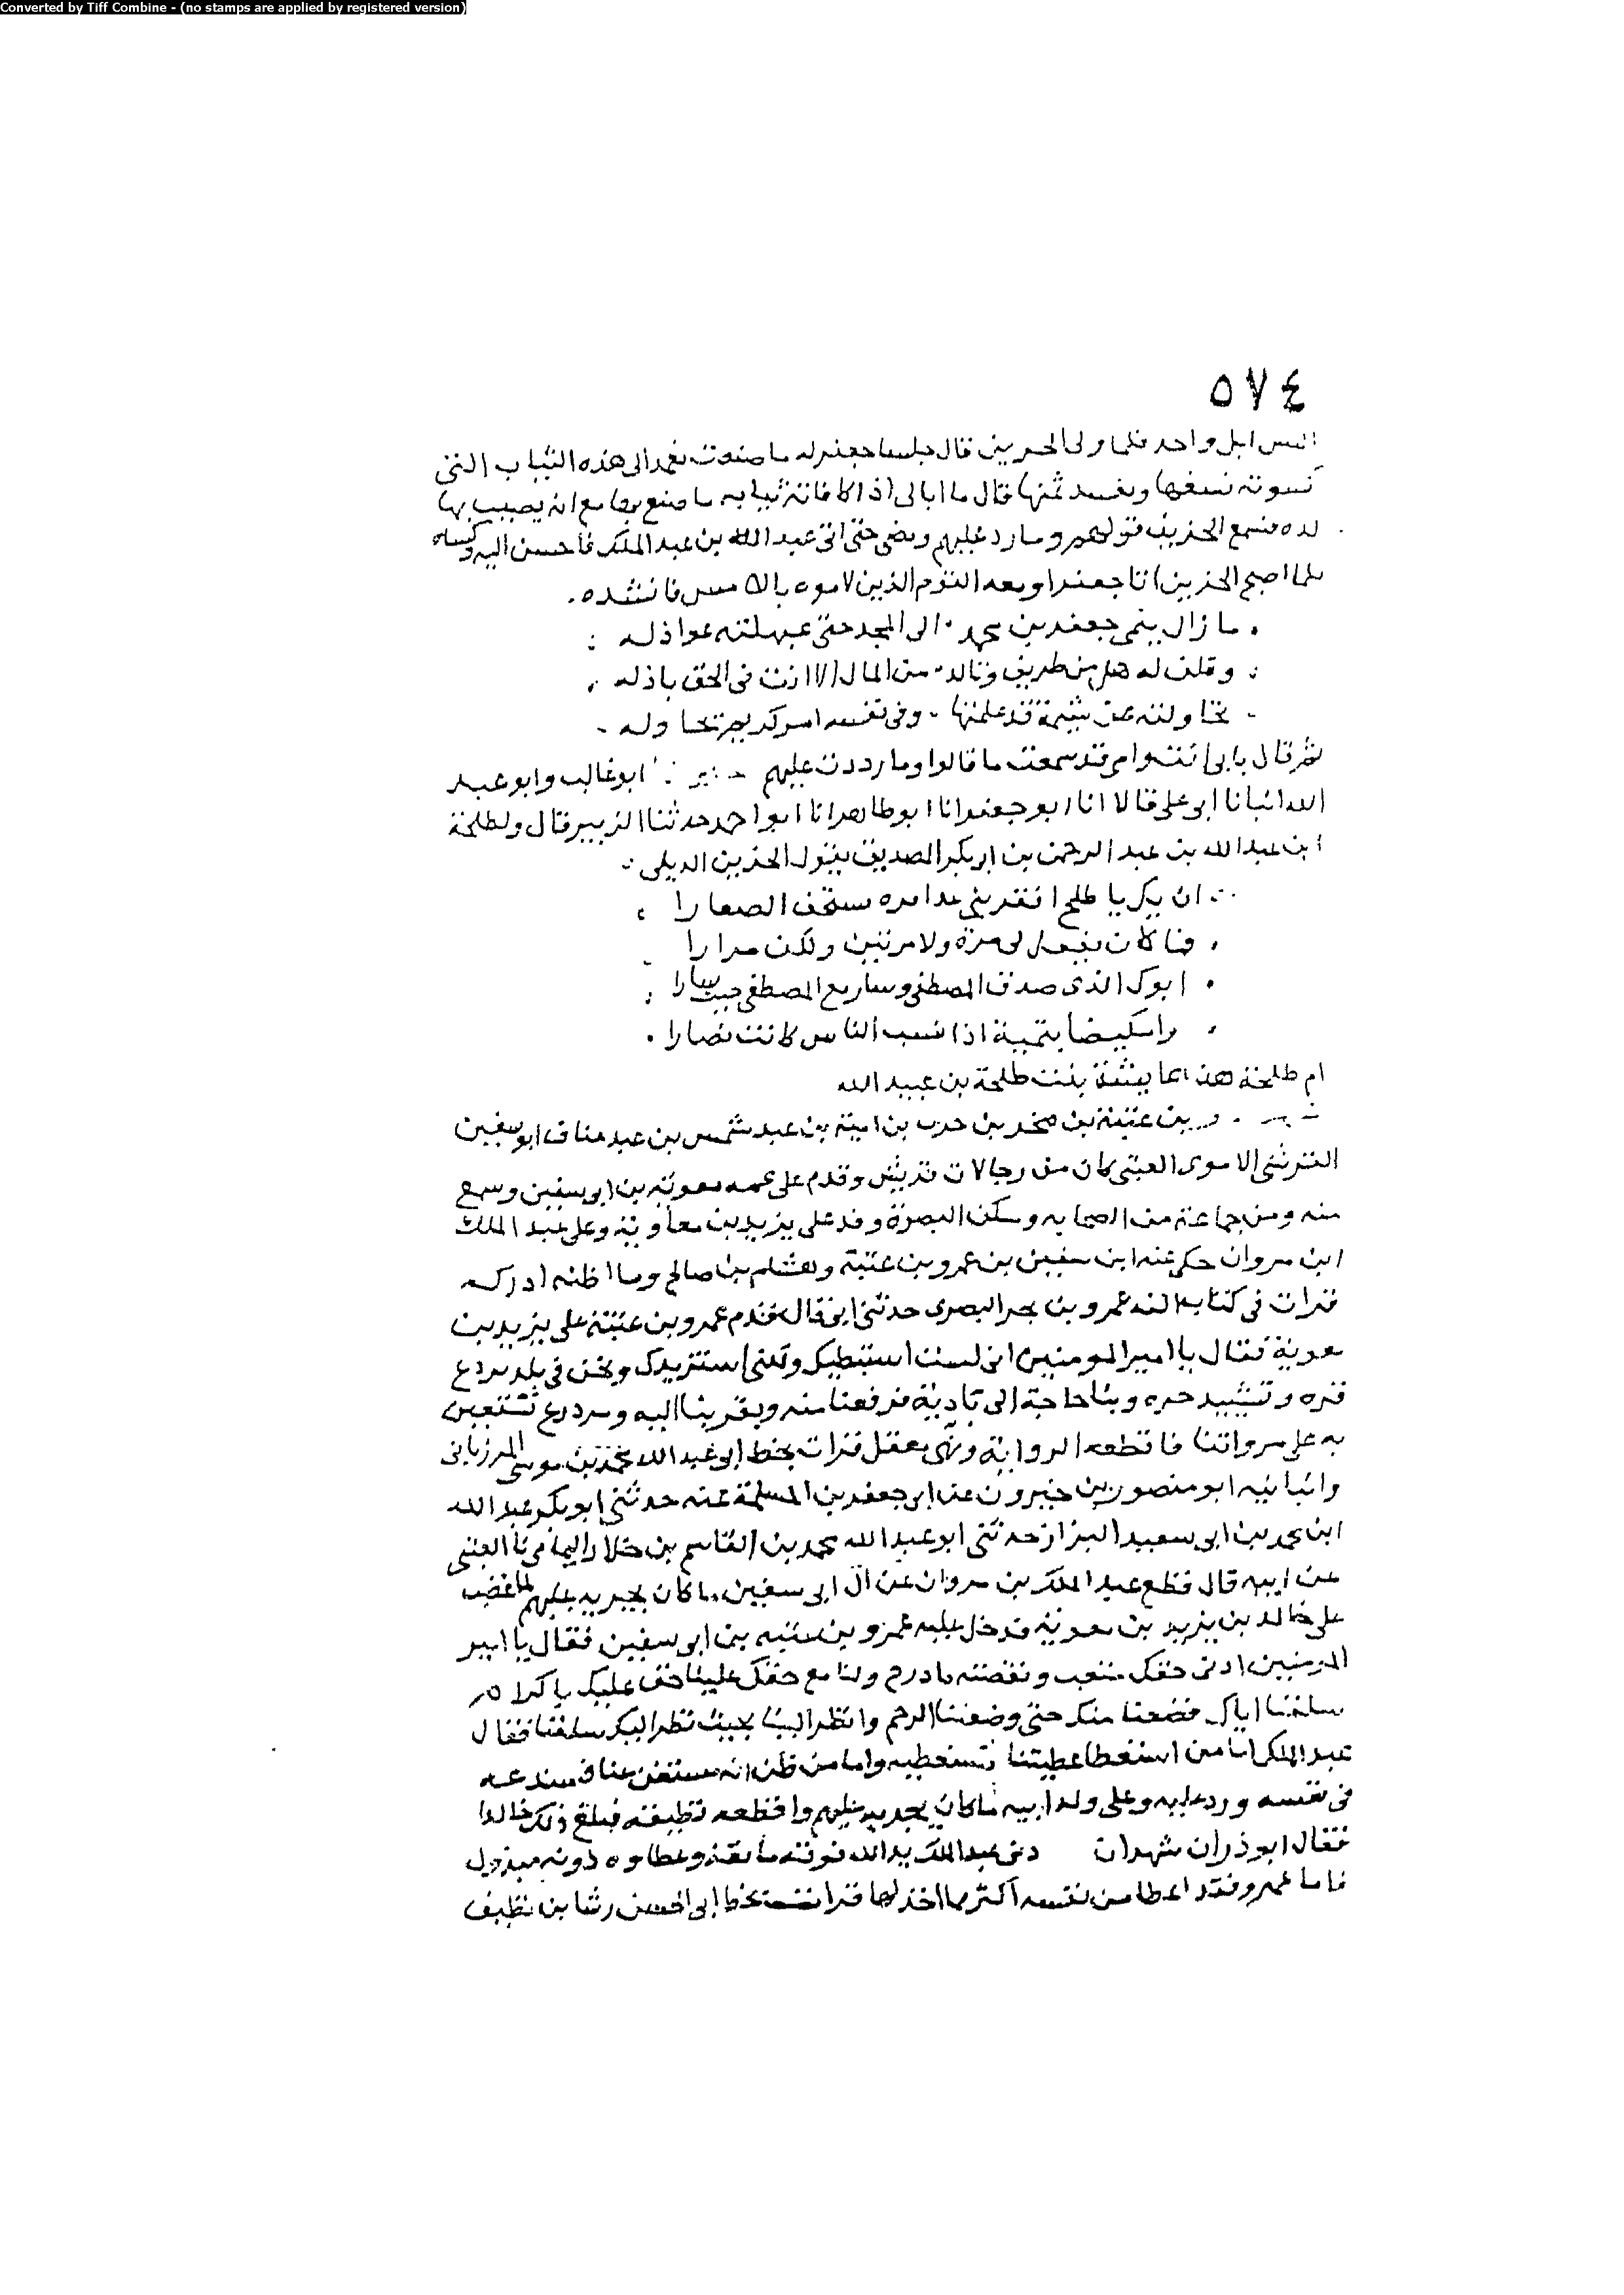 Converted by Tiff Combine - (no stamps are applied by registered version)
٥٧٤
واحد فلما ولى الحزين قال جلساء جعفر له ما صنعت يعمد الى هذه الثياب التى
كسوته فيبيعها ويفسد ثمنها قال ما ابالى اذا كافاته بثيابه ما صنع بها
فسمع الحزين قولهم وما رد عليهم ومضى حتى اتى عبد الله بن عبد الملك فاحسن اليه وكساه
فلما اصبح الحزين اتا جعفرا ومعه القوم الذين لاموه بالامس فانشده
ما زال ينمى جعفر بن محمد الى المجد حتى عبهلته عواذله
وقلن له هل من طريف وتالد من المال الا انت فى الحق باذله
يحاولنه عن شيمة قد علمنها وفى نفسه امر كريم يحاوله
ثم قال بابى انت وامى قد سمعت ما قالوا وما رددت عليهم ابو غالب وابو عبد
الله انبانا ابى على قالا انا ابو جعفر انا ابو طاهر انا احمد حدثنا الزبير قال ولطلحة
ابن عبد الله بن عبد الرحمن بن ابى بكر الصديق يقول الحزين الديلى
ان يك يا طلح عدامره تستخف الصفارا
فما كان نفعك لى مرة ولا مرتين ولكن مرارا
ابوك الذى صدق المصطفى وسار مع المصطفى حيث سارا
وامك بيضا تيمية اذا نسب الناس كانت نضارا
ام طلحة هذا عايشة بنت طلحة بن عبيد الله
بن عتبة بن صخر بن حرب بن امية بن عبد شمس بن عبد مناف ابو سفين
القرشى الاموى العتبى كان من رجالات قريش وقدم على عمه معوية بن ابى سفين وسمع
منه ومن جماعة من الصحابه وسكن البصرة وفد على يزيد بن معاوية وعلى عبد الملك
ابن مروان حكى عنه ابن سفين بن عمرو بن عتبة وهشام بن صالح وما اظنه ادركه
قرات فى كتاب الفه عمرو بن بحر البصرى حدثنى قال قدم عمرو بن عتبة على يزيد بن
معوية فقال يا امير المومنين انى لست استبطيك ولكنى استزيدك ونحن فى بلد
قره وتشييد حره وبنا حاجة الى ترفعنا منه وتقربنا اليه نستعين
به على مرواتنا فاقطعه معقل قرات بخط ابى عبد الله محمد بن موسى المرزبانى
وانبانيه ابو منصور بن خيرون عن ابى جعفر بن المسلمة عنه حدثنى ابو بكر عبد الله
ابن محمد بن ابى سعيد البزاز حدثنى ابو عبد الله محمد بن القاسم بن خلاد اليمامى نا العتبى
عن ابيه قال قطع عبد الملك بن مروان عن ال ابى سفين ما كان يجريه عليهم لما غضب
على خالد بن يزيد بن معوية فدخل عليه عمرو بن عتبه بن ابى سفين فقال يا امير
المومنين ادنى حقك متعب وتقصيه فادح ولنا مع حقك علينا حق عليك باكرام
سلفنا اياك فضعنا منك حتى وضعتنا الرحم وانظر الينا بحيث نظر اليك سلفنا فقال
عبد الملك اما من استعطا عطيتنا فسنعطيه واما من ظن انه مستغن عنا فسندعه
فى نفسه ورد عليه وعلى ولد ابيه ما كان يجريه عليهم واقطعه قطيعة فبلغ ذلك خالدا
فقال عبد الملك يد الله فوقه مانعة وعطاوه دونه مبذول
فاما عمرو فقد اعطا من نفسه اكثر مما اخذ لها قرات بخط ابى الحسن رشا بن نظيف